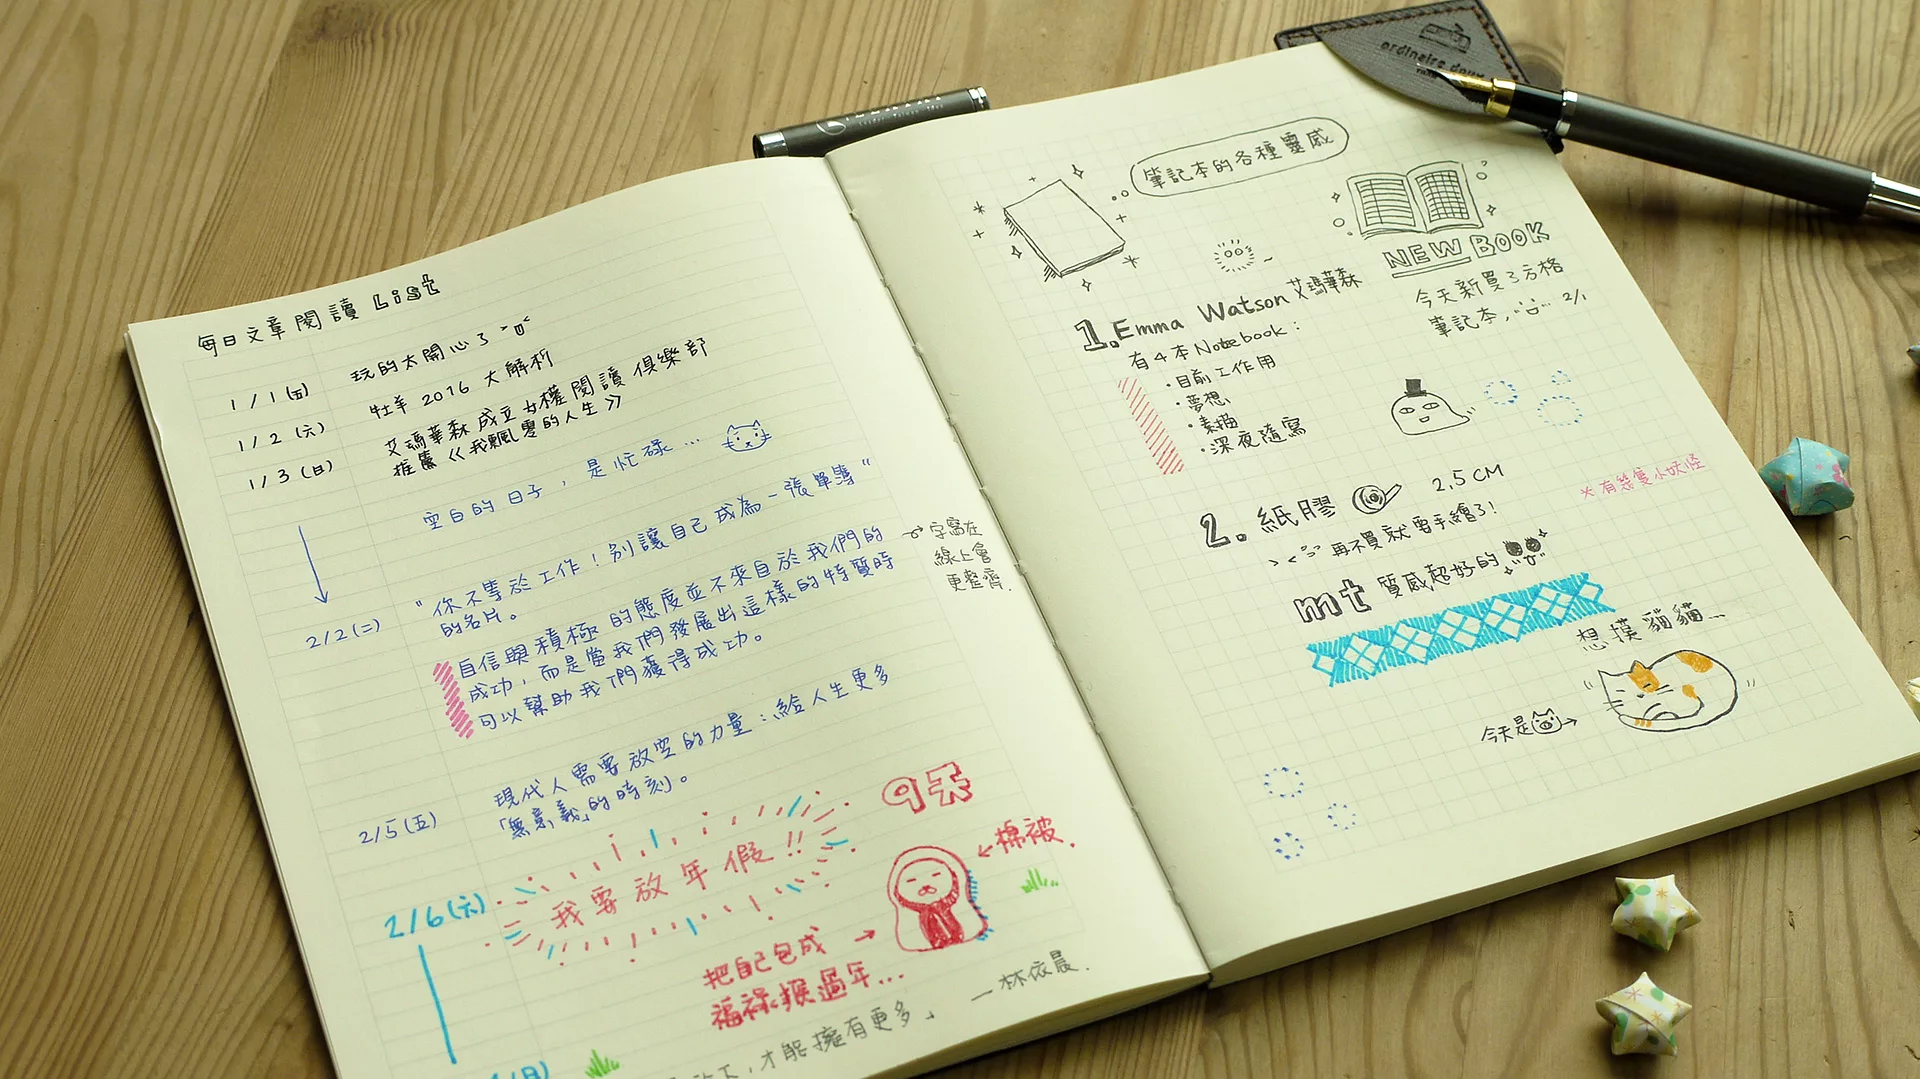 每日文章閱讀 List
1/1(五) 玩的太開心了
1/2(六) 牡羊 2016 大解析
1/3(日) 艾瑪華森成立女權閱讀俱樂部
推薦《我飄零的人生》
空白的日子，是忙碌...
2/2(二) "你不等於工作！別讓自己成為一張單薄"
的名片。
自信與積極的態度並不來自於我們的
成功，而是當我們發展出這樣的特質時
可以幫助我們獲得成功。
字寫在
線上會
更整齊.
2/5(五) 現代人需要放空的力量：給人生更多
「無意義」的時刻。
2/6(六) 我要放年假!!
9天
棉被.
把自己包成
福祿猴過年...
才能擁有更多」 —林依晨.
(日)
ordinaire
筆記本的各種靈感
NEW BOOK
今天新買了方格
筆記本, 2/1
1. Emma Watson 艾瑪華森
有4本Notebook：
·目前工作用
·夢想
·素描
·深夜隨寫
*有幾隻小妖怪
2. 紙膠 2.5CM
再不買就要手繪了!
mt 質感超好的
想摸貓貓...
今天是